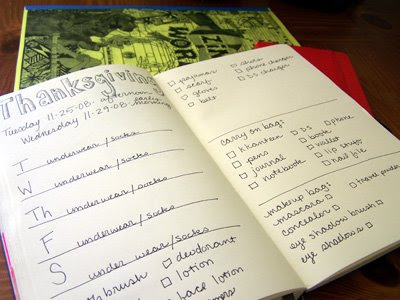 Thanksgiving
Tuesday 11-25-08 afternoon
Wednesday 11-29-08 early morning
T underwear/socks
W underwear/socks
Th underwear/socks
F underwear/socks
S underwear/socks
brush
deodorant
lotion
face lotion
pajamas
scarf
gloves
belt
shoes
phone charger
DS charger
carry on bag:
kharteen
pens
journal
notebook
DS
book
wallet
lip stuff
nail file
phone
makeup bag:
mascara
concealer
eye shadow brush
eye shadows
travel powder